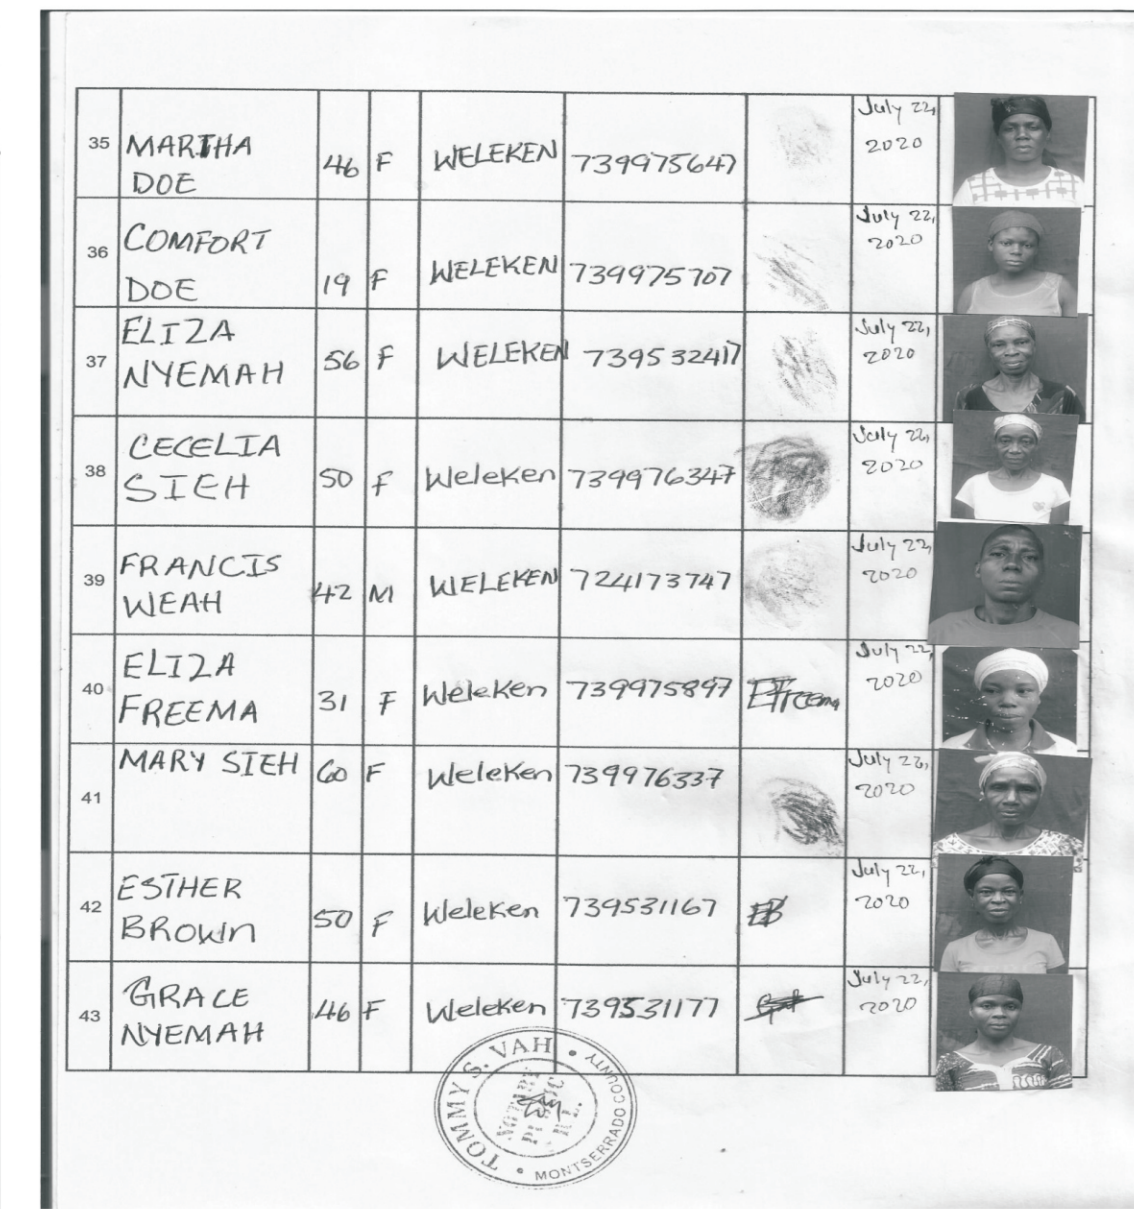 35 MARTHA DOE 46 F WELEKEN 739975647 July 22, 2020
36 COMFORT DOE 19 F WELEKEN 739975707 July 22, 2020
37 ELIZA NYEMAH 56 F WELEKEN 739532417 July 22, 2020
38 CECELIA SIEH 50 F Weleken 739976347 July 22, 2020
39 FRANCIS WEAH 42 M WELEKEN 724173747 July 22, 2020
40 ELIZA FREEMA 31 F Weleken 739975897 EFreema July 22, 2020
41 MARY SIEH 60 F Weleken 739976337 July 22, 2020
42 ESTHER BROWN 50 F Weleken 739531167 EB July 22, 2020
43 GRACE NYEMAH 46 F Weleken 739531177 July 22, 2020
TOMMY S. VAH • MONTSERRADO COUNTY •
NOTARY
PUBLIC
R.L.